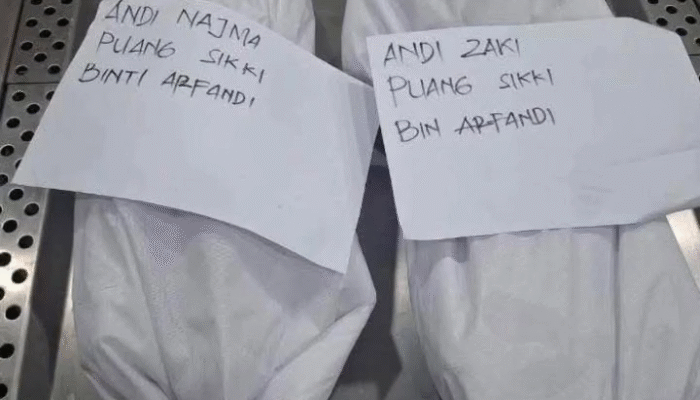 ANDI NAJMA
PUANG SIKKI
BINTI ARFANDI
ANDI ZAKI
PUANG SIKKI
BIN ARFANDI